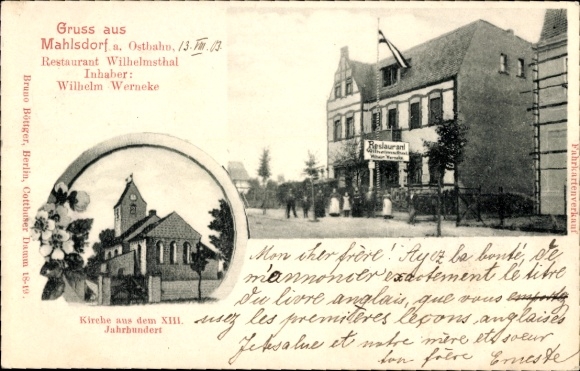 Gruss aus
Mahlsdorf a. Ostbahn, 13. VIII. 03.
Restaurant Wilhelmsthal
Inhaber:
Wilhelm Werneke
Bruno Böttger, Berlin, Cotthuser Damm 18-19.
Restaurant
Wilhelm Werneke
Fahrkartenverkauf
Kirche aus dem XIII.
Jahrhundert
Mon cher frère! Ayez la bonté, de
m'annoncer exactement le titre
du livre anglais, que vous
usez les premières leçons anglaises
Je salue et notre mère et soeur
ton frère Erneste